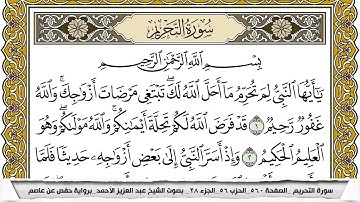 سُورَةُ التَّحْرِيمِ
بِسْمِ اللَّهِ الرَّحْمَٰنِ الرَّحِيمِ
يَا أَيُّهَا النَّبِيُّ لِمَ تُحَرِّمُ مَا أَحَلَّ اللَّهُ لَكَ ۖ تَبْتَغِي مَرْضَاتَ أَزْوَاجِكَ ۚ وَاللَّهُ
غَفُورٌ رَّحِيمٌ ١ قَدْ فَرَضَ اللَّهُ لَكُمْ تَحِلَّةَ أَيْمَانِكُمْ ۚ وَاللَّهُ مَوْلَاكُمْ ۖ وَهُوَ
الْعَلِيمُ الْحَكِيمُ ٢ وَإِذْ أَسَرَّ النَّبِيُّ إِلَىٰ بَعْضِ أَزْوَاجِهِ حَدِيثًا فَلَمَّا
سورة التحريم _الصفحة ٥٦٠_الحزب ٥٦_الجزء ٢٨_ بصوت الشيخ عبد العزيز الاحمد_برواية حفص عن عاصم